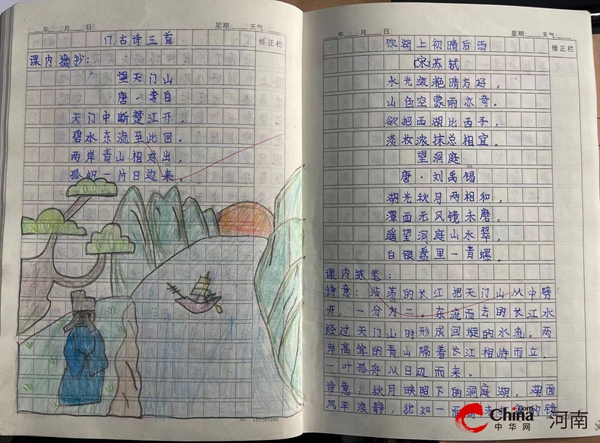 年 月 日 星期 天气
修正栏
17古诗三首
课内摘抄：
望天门山
唐·李白
天门中断楚江开，
碧水东流至此回。
两岸青山相对出，
孤帆一片日边来。
年 月 日 星期 天气
修正栏
饮湖上初晴后雨
宋苏轼
水光潋滟晴方好，
山色空蒙雨亦奇。
欲把西湖比西子，
淡妆浓抹总相宜。
望洞庭
唐·刘禹锡
湖光秋月两相和，
潭面无风镜未磨。
遥望洞庭山水翠，
白银盘里一青螺。
课内练笔：
诗意：浩荡的长江把天门山从中劈
开，一分为二。东流而去的长江水
经过天门山时形成回旋的水流。两
岸高耸的青山隔着长江相峙而立，
一叶孤舟从日边而来。
诗意：秋月映照下的洞庭湖，湖面
风平浪静，犹如一面
China
中华网
河南